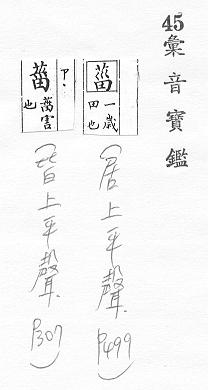 45彙音寶鑑
菑 一歲田也
(居上平聲.P499)
ㄗ.
菑 菑害也
上平聲.P307)